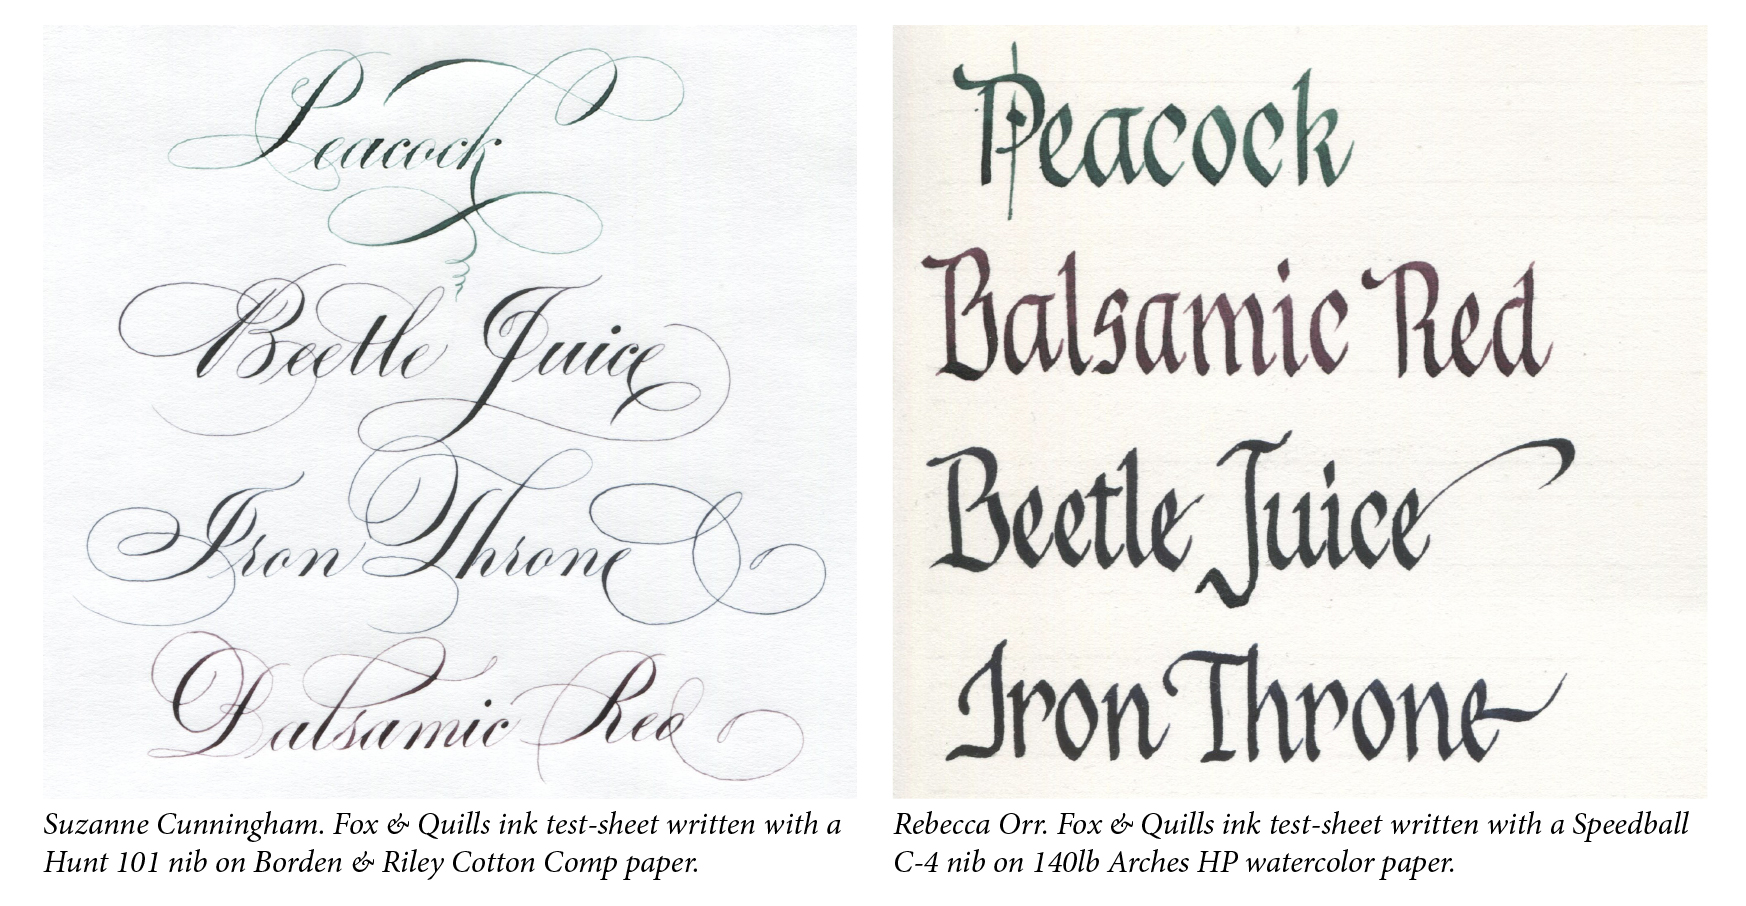 Peacock
Beetle Juice
Iron Throne
Balsamic Red
Suzanne Cunningham. Fox & Quills ink test-sheet written with a
Hunt 101 nib on Borden & Riley Cotton Comp paper.
Peacock
Balsamic Red
Beetle Juice
Iron Throne
Rebecca Orr. Fox & Quills ink test-sheet written with a Speedball
C-4 nib on 140lb Arches HP watercolor paper.